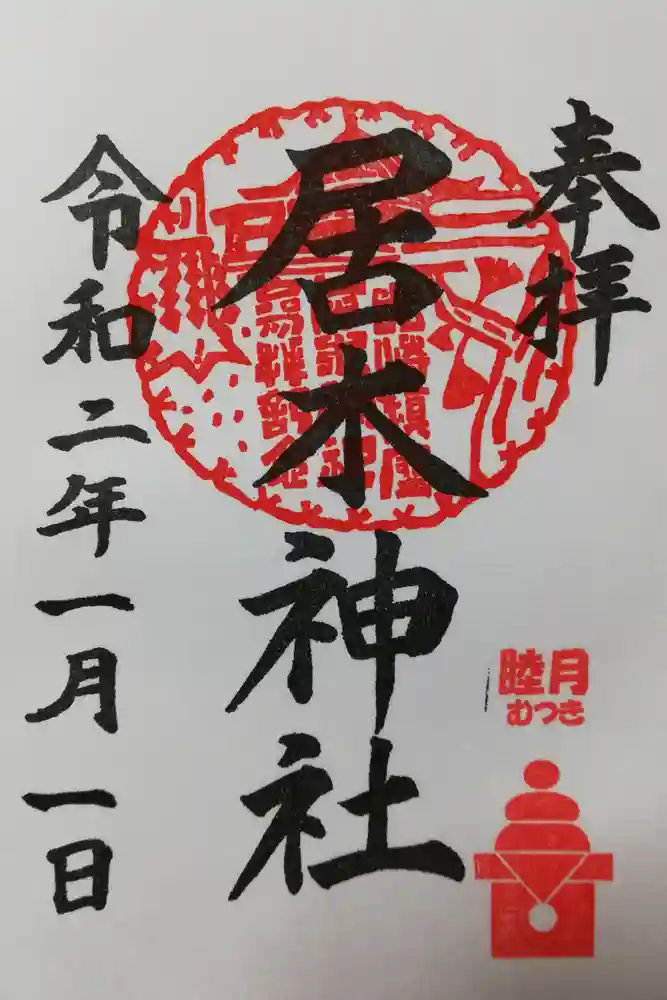 奉拝
居木神社
令和二年一月一日
睦月
むつき